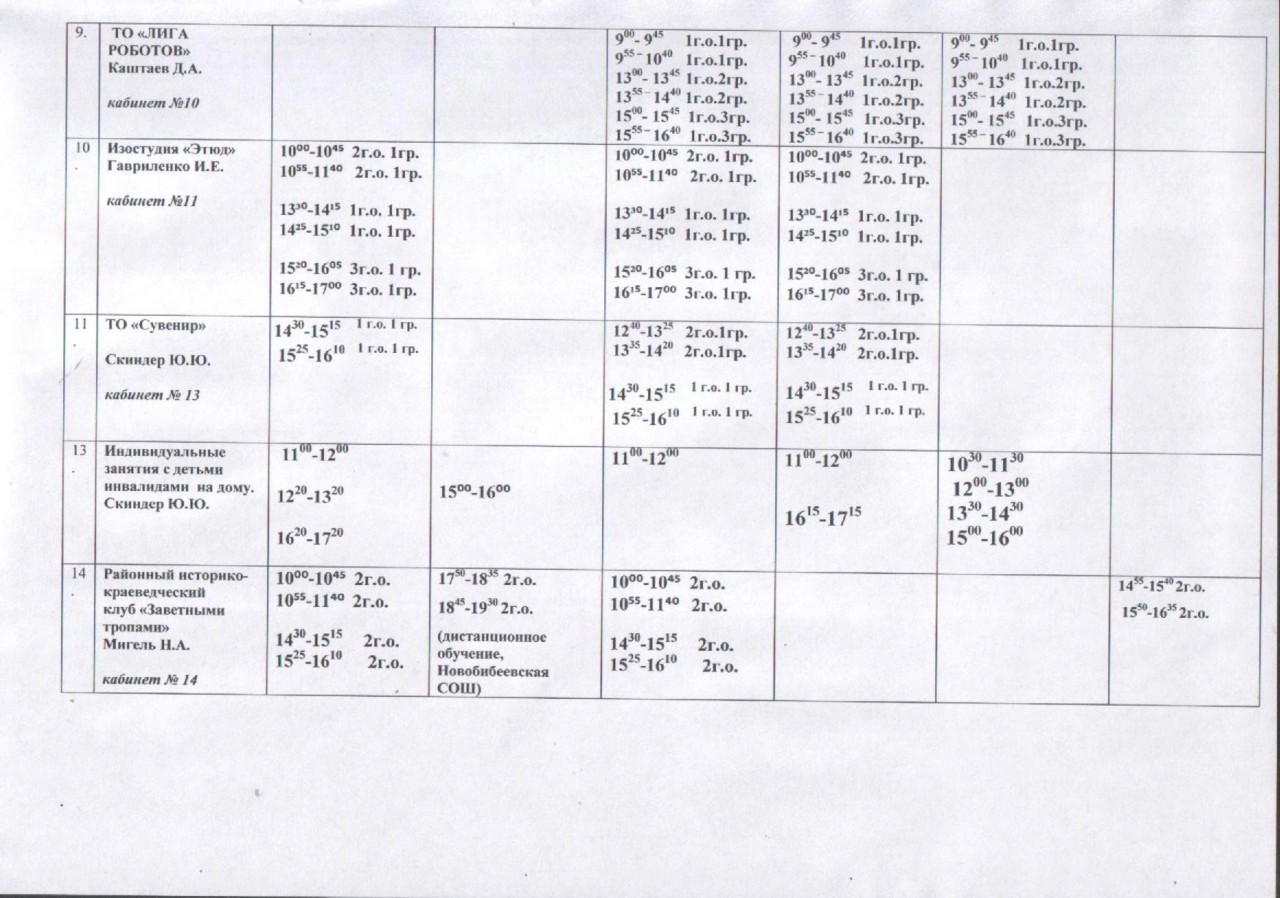 9.
ТО «ЛИГА
РОБОТОВ»
Каштаев Д.А.
кабинет №10
9⁰⁰- 9⁴⁵ 1г.о.1гр.
9⁵⁵⁻ 10⁴⁰ 1г.о.1гр.
13⁰⁰- 13⁴⁵ 1г.о.2гр.
13⁵⁵⁻ 14⁴⁰ 1г.о.2гр.
15⁰⁰- 15⁴⁵ 1г.о.3гр.
15⁵⁵⁻ 16⁴⁰ 1г.о.3гр.
9⁰⁰- 9⁴⁵ 1г.о.1гр.
9⁵⁵⁻ 10⁴⁰ 1г.о.1гр.
13⁰⁰- 13⁴⁵ 1г.о.2гр.
13⁵⁵⁻ 14⁴⁰ 1г.о.2гр.
15⁰⁰- 15⁴⁵ 1г.о.3гр.
15⁵⁵⁻ 16⁴⁰ 1г.о.3гр.
9⁰⁰- 9⁴⁵ 1г.о.1гр.
9⁵⁵⁻ 10⁴⁰ 1г.о.1гр.
13⁰⁰- 13⁴⁵ 1г.о.2гр.
13⁵⁵⁻ 14⁴⁰ 1г.о.2гр.
15⁰⁰- 15⁴⁵ 1г.о.3гр.
15⁵⁵⁻ 16⁴⁰ 1г.о.3гр.
10
.
Изостудия «Этюд»
Гавриленко И.Е.
кабинет №11
10⁰⁰-10⁴⁵ 2г.о. 1гр.
10⁵⁵-11⁴⁰ 2г.о. 1гр.
13³⁰-14¹⁵ 1г.о. 1гр.
14²⁵-15¹⁰ 1г.о. 1гр.
15²⁰-16⁰⁵ 3г.о. 1 гр.
16¹⁵-17⁰⁰ 3г.о. 1гр.
10⁰⁰-10⁴⁵ 2г.о. 1гр.
10⁵⁵-11⁴⁰ 2г.о. 1гр.
13³⁰-14¹⁵ 1г.о. 1гр.
14²⁵-15¹⁰ 1г.о. 1гр.
15²⁰-16⁰⁵ 3г.о. 1 гр.
16¹⁵-17⁰⁰ 3г.о. 1гр.
10⁰⁰-10⁴⁵ 2г.о. 1гр.
10⁵⁵-11⁴⁰ 2г.о. 1гр.
13³⁰-14¹⁵ 1г.о. 1гр.
14²⁵-15¹⁰ 1г.о. 1гр.
15²⁰-16⁰⁵ 3г.о. 1 гр.
16¹⁵-17⁰⁰ 3г.о. 1гр.
11
.
ТО «Сувенир»
Скиндер Ю.Ю.
кабинет № 13
14³⁰-15¹⁵ 1 г.о. 1 гр.
15²⁵-16¹⁰ 1 г.о. 1 гр.
12⁴⁰-13²⁵ 2г.о.1гр.
13³⁵-14²⁰ 2г.о.1гр.
14³⁰-15¹⁵ 1 г.о. 1 гр.
15²⁵-16¹⁰ 1 г.о. 1 гр.
12⁴⁰-13²⁵ 2г.о.1гр.
13³⁵-14²⁰ 2г.о.1гр.
14³⁰-15¹⁵ 1 г.о. 1 гр.
15²⁵-16¹⁰ 1 г.о. 1 гр.
13
.
Индивидуальные
занятия с детьми
инвалидами на дому.
Скиндер Ю.Ю.
11⁰⁰-12⁰⁰
12²⁰-13²⁰
16²⁰-17²⁰
15⁰⁰-16⁰⁰
11⁰⁰-12⁰⁰
11⁰⁰-12⁰⁰
16¹⁵-17¹⁵
10³⁰-11³⁰
12⁰⁰-13⁰⁰
13³⁰-14³⁰
15⁰⁰-16⁰⁰
14
.
Районный историко-
краеведческий
клуб «Заветными
тропами»
Мигель Н.А.
кабинет № 14
10⁰⁰-10⁴⁵ 2г.о.
10⁵⁵-11⁴⁰ 2г.о.
14³⁰-15¹⁵ 2г.о.
15²⁵-16¹⁰ 2г.о.
17⁵⁰-18³⁵ 2г.о.
18⁴⁵-19³⁰ 2г.о.
(дистанционное
обучение,
Новобибеевская
СОШ)
10⁰⁰-10⁴⁵ 2г.о.
10⁵⁵-11⁴⁰ 2г.о.
14³⁰-15¹⁵ 2г.о.
15²⁵-16¹⁰ 2г.о.
14⁵⁵-15⁴⁰ 2г.о.
15⁵⁰-16³⁵ 2г.о.